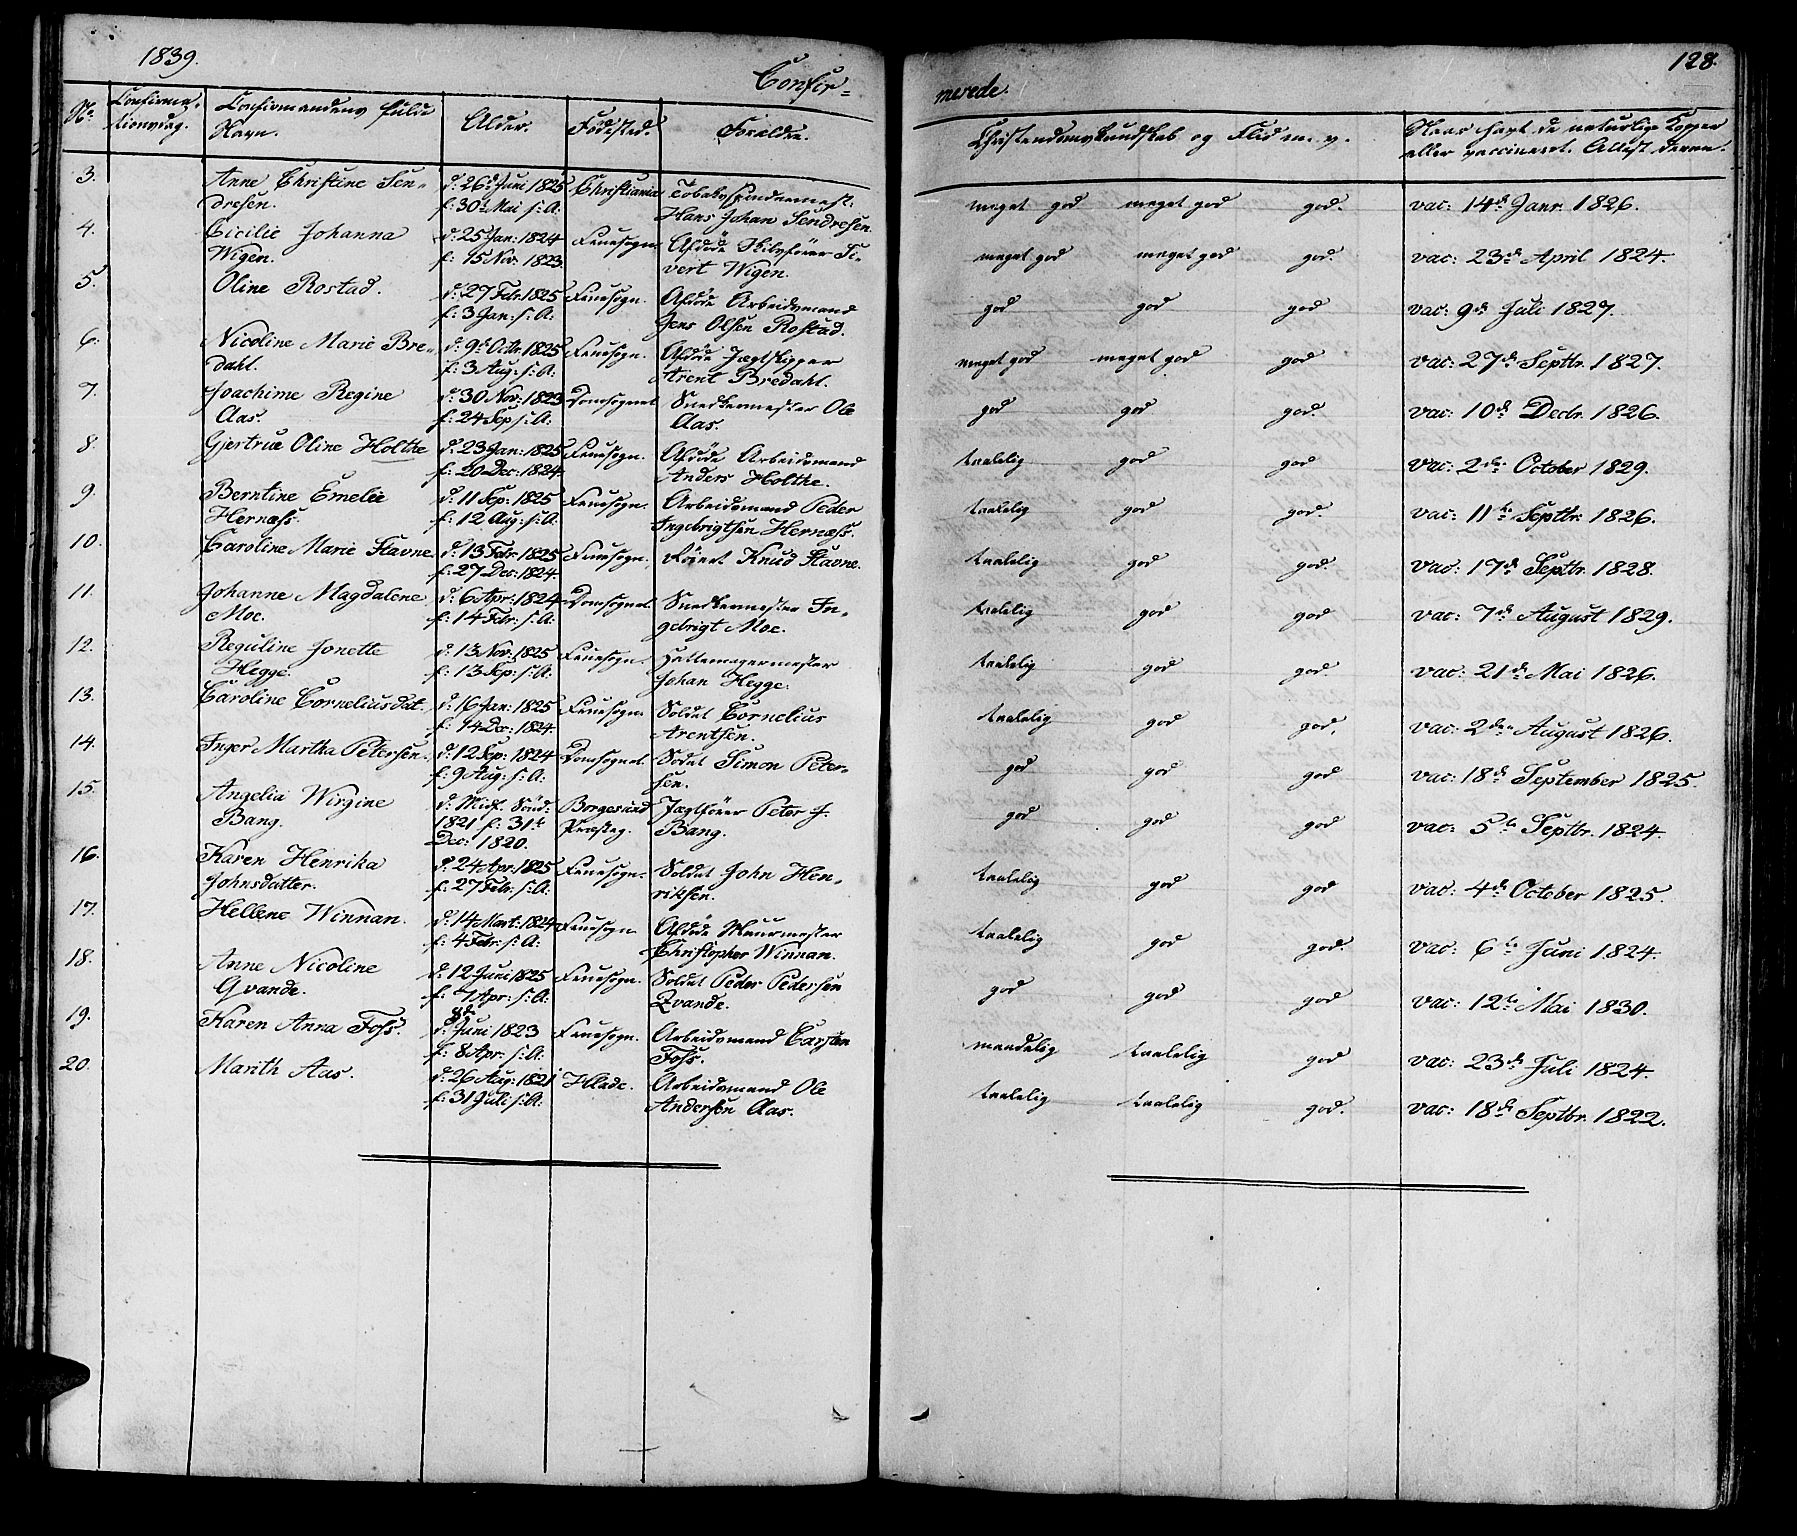 1839.
Confir=
merede.
128.
No.
Confirma-
tionsdag.
Confirmandens fulde
Navn.
Alder.
Födested.
Forældre.
Christendomskundskab og Flid m. v.
Naar havt de naturlige Kopper
eller vaccineret. Attest derom.
3.
Anne Christine Sen-
dresen.
d: 26de Juni 1825
f: 30te Mai s: A:
Christiania
Tobaksspindermest:
Hans Johan Sendresen.
meget god meget god god.
vac: 14de Janr. 1826.
4.
Cicilie Johanna
Wigen.
d: 25 Jan: 1824
f: 15 Nov. 1823.
Fruesogn.
Afdöde Skibsförer Si-
vert Wigen.
meget god meget god god.
vac: 23de April 1824.
5.
Oline Rostad.
d: 27 Febr. 1825
f: 3 Jan: s: A:
Fruesogn.
Afdöde Arbeidsmand
Jens Olsen Rostad.
god god god
vac: 9de Juli 1827.
6.
Nicoline Marie Bre-
dahl.
d: 9de Octbr. 1825
f: 3 Aug: s: A:
Fruesogn.
Afdöde Jægtskipper
Arent Bredahl.
meget god meget god god
vac: 27de Septbr. 1827.
7.
Joachime Regine
Aas.
d: 30 Nov: 1823
f: 24 Sep s: A:
Domsognet
Snedkermester Ole
Aas.
god god god.
vac: 10de Decbr. 1826.
8.
Gjertrue Oline Holthe
d: 23 Jan: 1825
f: 20 Dec: 1824.
Fruesogn.
Afdöde Arbeidsmand
Anders Holthe.
taalelig god god
vac: 2den October 1829.
9.
Berntine Emelie
Hernæss.
d: 11 Sep: 1825
f: 12 Aug: s: A:
Fruesogn.
Arbeidsmand Peder
Ingebrigtsen Hernæss.
taalelig god god.
vac: 11te Septbr. 1826.
10.
Caroline Marie Stavne
d: 13 Febr. 1825
f: 27 Dec: 1824.
Fruesogn.
Knud Stavne.
taalelig god god.
vac: 17de Septbr. 1828.
11.
Johanne Magdalene
Moe.
d: 6 Apr: 1824
f: 14 Febr: s: A:
Domsognet
Snedkermester In-
gebrigt Moe.
taalelig god god
vac: 7de August 1829.
12.
Reguline Jonette
Hegge.
d: 13 Nov: 1825
f: 13 Sep: s: A:
Fruesogn.
Hattemagermester
Johan Hegge.
taalelig god god.
vac: 21de Mai 1826.
13.
Caroline Corneliusdat.
d: 16 Jan: 1825
f: 14 Dec: 1824.
Fruesogn.
Soldat Cornelius
Arentsen.
taalelig god god.
vac: 2den August 1826.
14.
Inger Martha Petersen.
d: 12 Sep: 1824
f: 9 Aug: s: A:
Domsognet
Sodat Simon Peter-
sen.
god god god
vac: 18de September 1825.
15.
Angelia Wirgine
Bang.
d: Midf. Sönd:
1821 f: 31te
Dec: 1820.
Borgesund
Præsteg.
Jægtförer Peter J.
Bang.
god god god
vac: 5te Septbr. 1824.
16.
Karen Henrika
Johnsdatter.
d: 24 Apr: 1825
f: 27 Febr: s: A:
Fruesogn.
Soldat John Hen-
riksen.
taalelig god god
vac: 4de October 1825.
17.
Hellene Winnan.
d: 14 Mart: 1824
f: 4 Febr: s: A:
Fruesogn
Afdöde Muurmester
Christopher Winnan.
taalelig god god.
vac: 6te Juni 1824.
18.
Anne Nicoline
Qvande.
d: 12 Juni 1825
f: 7 Apr: s: A:
Fruesogn.
Soldat Peder Pedersen
Qvande.
god god god
vac: 12te Mai 1830.
19.
Karen Anna Foss.
8de
d: Juni 1823
f: 8 Apr: s: A:
Fruesogn.
Arbeidsmand Carsten
Foss.
maadelig taalelig god
vac: 23de Juli 1824.
20.
Marith Aas.
d: 26 Aug: 1821
f: 31 Juli s: A:
Hlade.
Arbeidsmand Ole
Andersen Aas.
taalelig taalelig god.
vac: 18de Septbr. 1822.